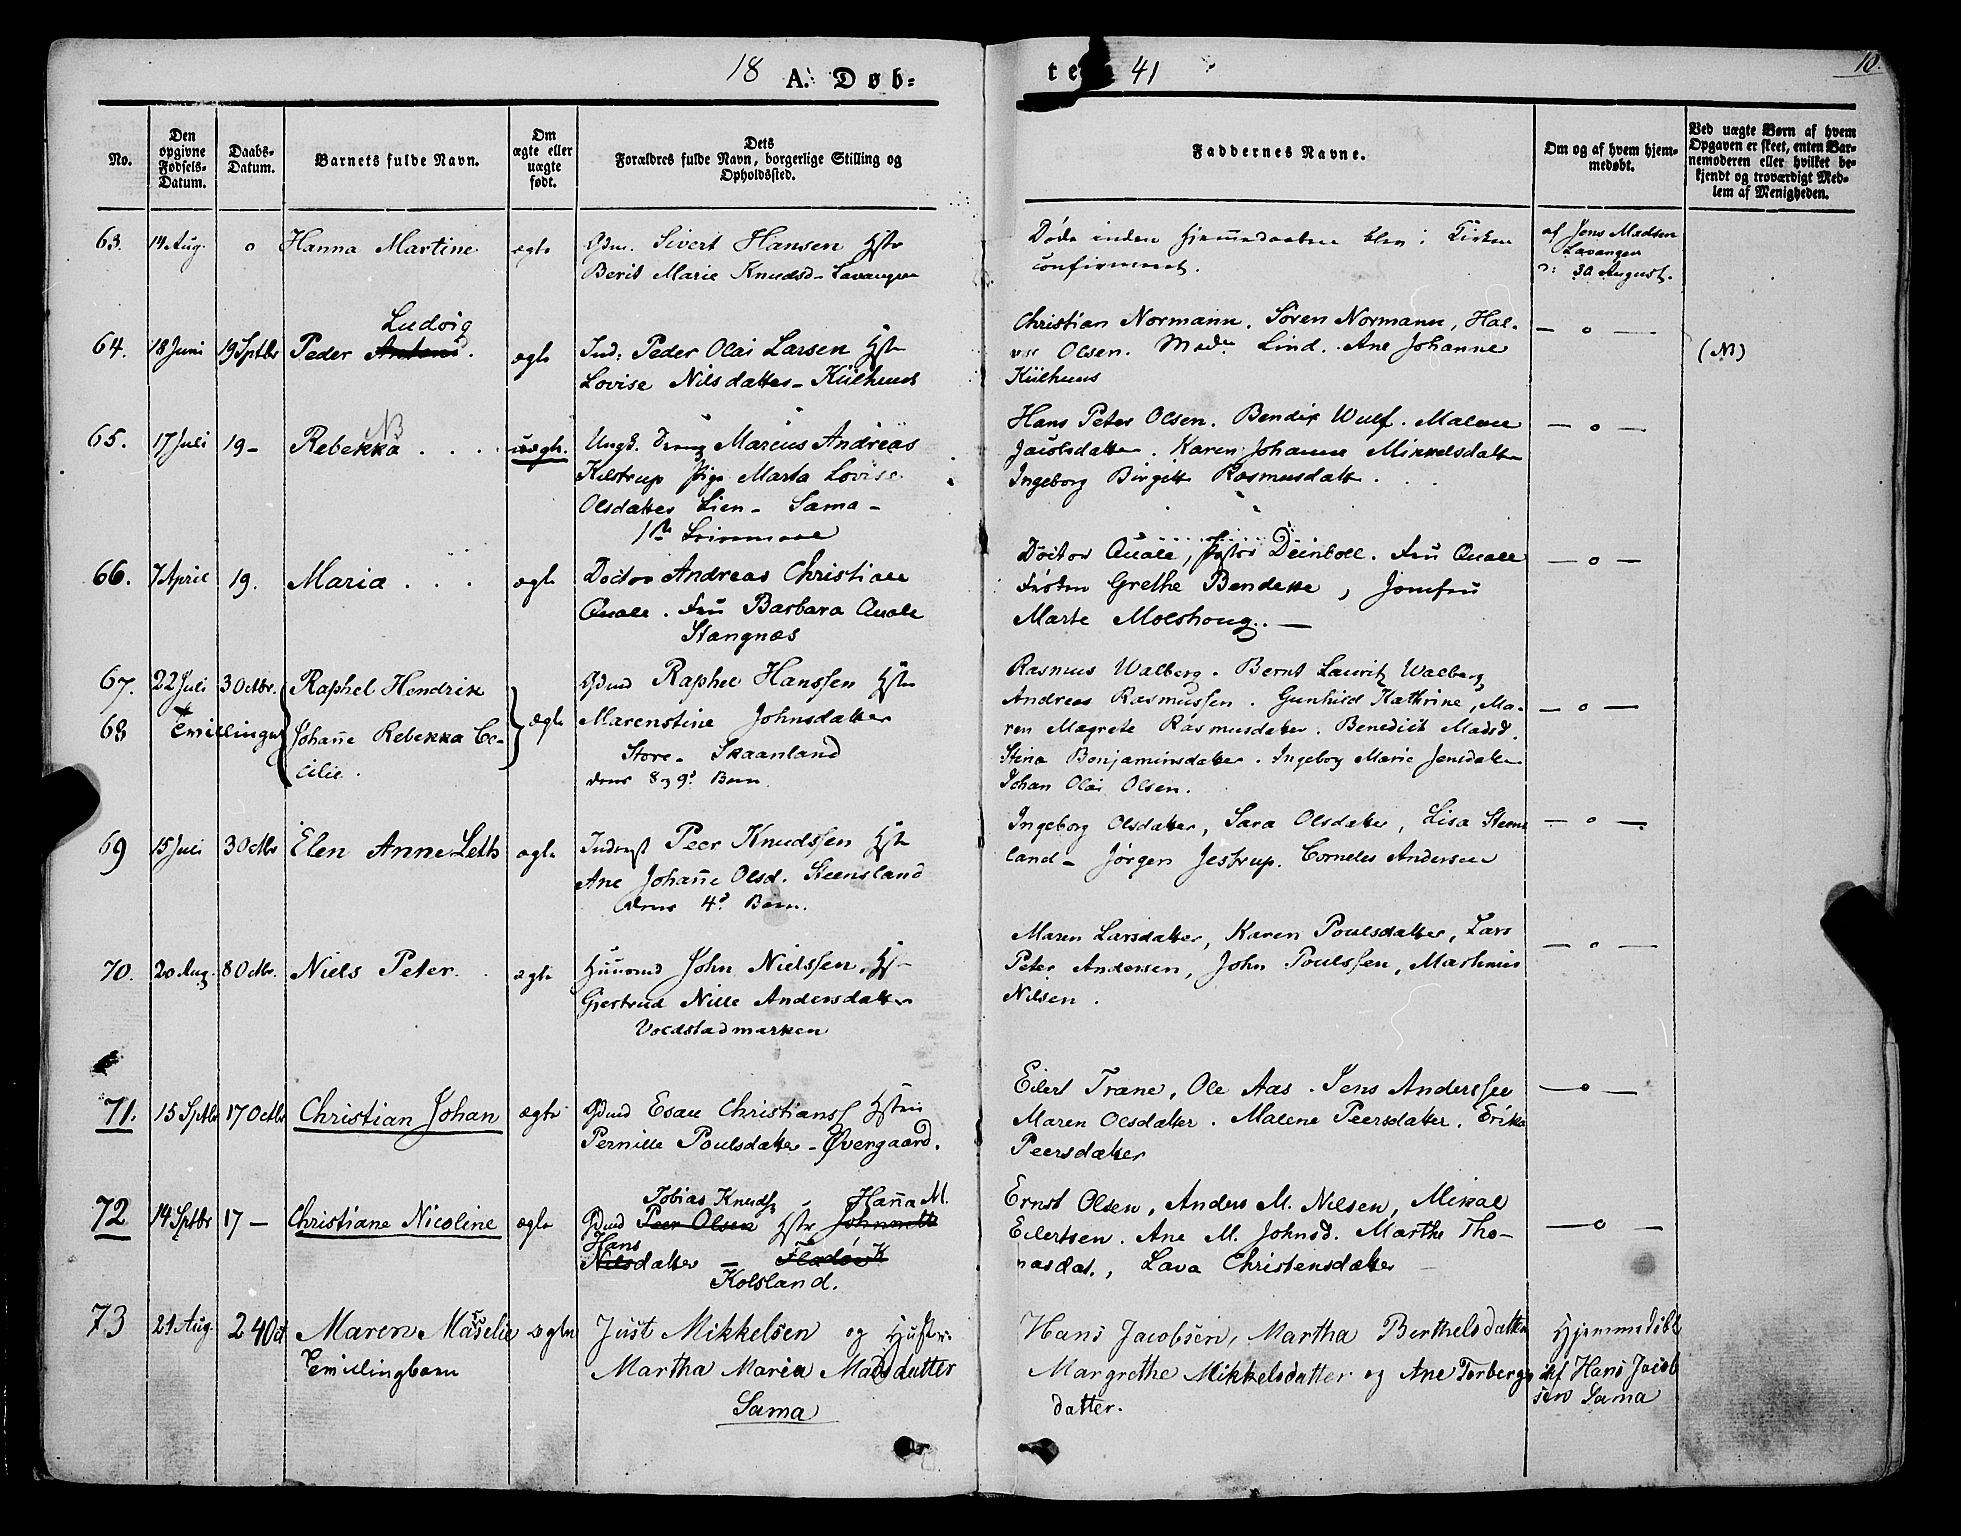 18 A. Døb-
te 41
10.
No.
Den opgivne Fødsels-Datum.
Daabs-Datum.
Barnets fulde Navn.
Om ægte eller uægte født.
Dets Forældres fulde Navn, borgerlige Stilling og Opholdssted.
Faddernes Navne.
Om og af hvem hjem-medøbt.
Ved uægte Børn af hvem Opgaven er skeet, enten Bar-nemoderen eller hvilket be-kjendt og troværdigt Med-lem af Menigheden.
63. 14 Aug. o Hanna Martine ægte
Sivert Hansen Hstr
Berit Marie Knudsd- Lavangen
Døde inden Hjemmedaaben blev i Kirken
confirmeret.
af Jens Madsen
Lavangen
30 August.
64. 18 Juni 19 Sptbr Peder Antoni. ægte
Ludvig
Ind: Peder Olai Larsen Hstr
Lovise Nilsdatter- Kiilhuus
Christian Normann. Sören Normann, Hal-
vor Olsen. Mad. Lind. Ane Johanne
Kiilhuus
— o —
(NB)
65. 17 Juli 19- Rebekka . . . uægte.
NB
Ungk. Marcus Andreas
Kilstrup Pige Marta Lovise
Olsdatter Lien- Sama-
Hans Peter Olsen. Bendix Wulf. Malene
Jacobsdatter. Karen Johanne Mikkelsdatter
Ingeborg Birgitte Rasmusdatt.
— o —
66. 7 April 19. Maria . . . ægte
Doctor Andreas Christian
Quale. Fru Barbara Quale
Stangnæs
Doctor Quale, Pastor Deinboll. Fru Quale
Frøken Grethe Bendekke, Jomfru
Marte Molshoug.
— o —
67. 22 Juli 3 Octbr. Raphel Hendrik
68 Tvillinger Johane Rebekka Ce-
cilie. ægte
Gdmd Raphel Hanssen Hstr
Marenstine Johnsdatter
Store- Skaanland
deres 8 og 9d Barn.
Rasmus Walberg. Bernt Lauritz Walberg
Andreas Rasmussen. Gunhild Kathrine, Ma-
ren Magrete Rasmusdatter. Benedict Madsd.
Stina Benjaminsdatter. Ingeborg Marie Jensdatter
Johan Olai Olsen.
— o —
69 15 Juli 3 Octbr Elen Anne Leth ægte
Inderst Peer Knudssen Hstr
Ane Johane Olsd. Steensland
deres 4d Barn.
Ingeborg Olsdatter, Sara Olsdatter, Lisa Steens
land- Jørgen Jestrup. Cornelis Andersen
— o —
70. 20 Aug. 8 Octbr. Niels Peter. ægte
Huusmd John Nielssen, H-
Giertrud Nille Andersdatter
Voldstadmarken
Maren Larsdatter, Karen Poulsdatter, Lars
Peter Andersen, John Poulssen, Marthinus
Nilsen.
— o —
71. 15 Sptbr 17 Octbr Christian Johan ægte
Gdmd Esau Christianss Hstru
Pernille Poulsdatter- Øvergaard.
Eilert Trane, Ole Aas. Jens Anderssen
Maren Olsdatter. Malene Peersdatter. Erika
Peersdatter
— o —
72 14 Sptbr 17 — Christiane Nicoline ægte
Tobias Knuds Hana M.
Gdmd Peer Olsen Hstr
Hans
Nilsdatter — Fladøv K
Kolsland.
Ernst Olsen, Anders M. Nilsen, Mikal
Eilertsen. Ane M. Johnsd. Marthe Tho-
masdat., Lava Christensdatter
— o —
73 21 Aug. 24 Oct Maren Maselie ægte
Tvillingbarn
Just Mikkelsen og Hustr.
Martha Maria Madsdatter
Sama
Hans Jacobsen, Martha Berthelsdatter
Margrethe Mikkelsdatter og Ane Torbergs
datter.
Hjemmedøbt
af Hans Jacob
sen Sama